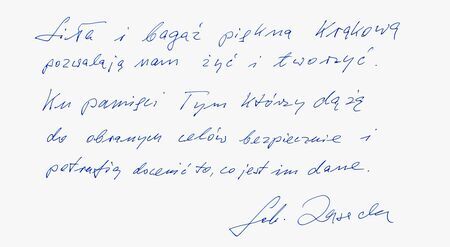 Siła i bagaż piękna Krakowa
pozwalają nam żyć i tworzyć.
Ku pamięci Tym którzy dążą
do obranych celów bezpiecznie i
potrafią docenić to, co jest im dane.